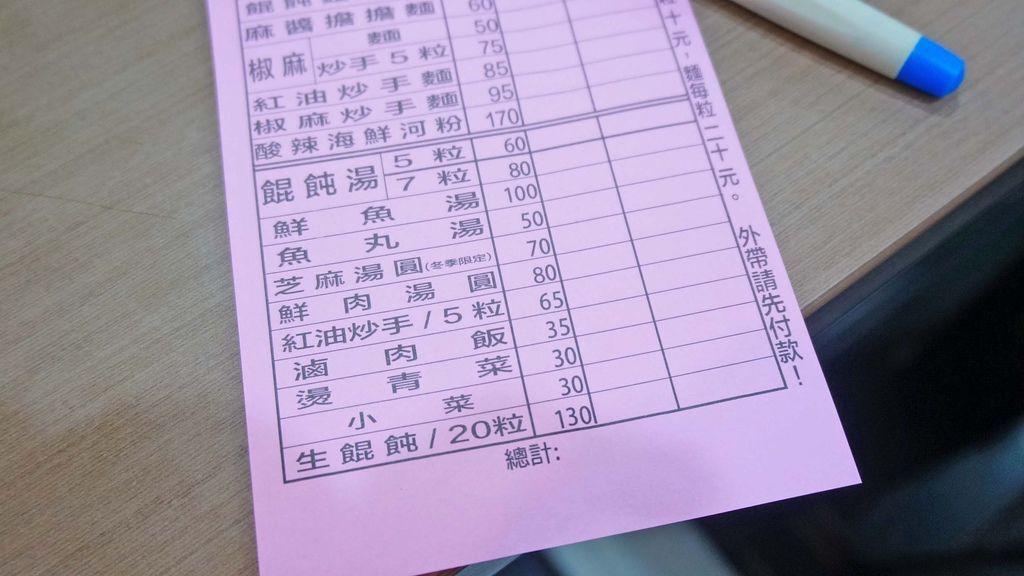 麻醬擔擔麵 60
椒麻 麵 50
炒手5粒 75
紅油炒手麵 85
椒麻炒手麵 95
酸辣海鮮河粉 170
餛飩湯 5粒 60
7粒 80
鮮魚湯 100
魚丸湯 50
芝麻湯圓(冬季限定) 70
鮮肉湯圓 80
紅油炒手/5粒 65
滷肉飯 35
燙青菜 30
小菜 30
生餛飩/20粒 130
總計:
十元，麵每粒二十元。 外帶請先付款！